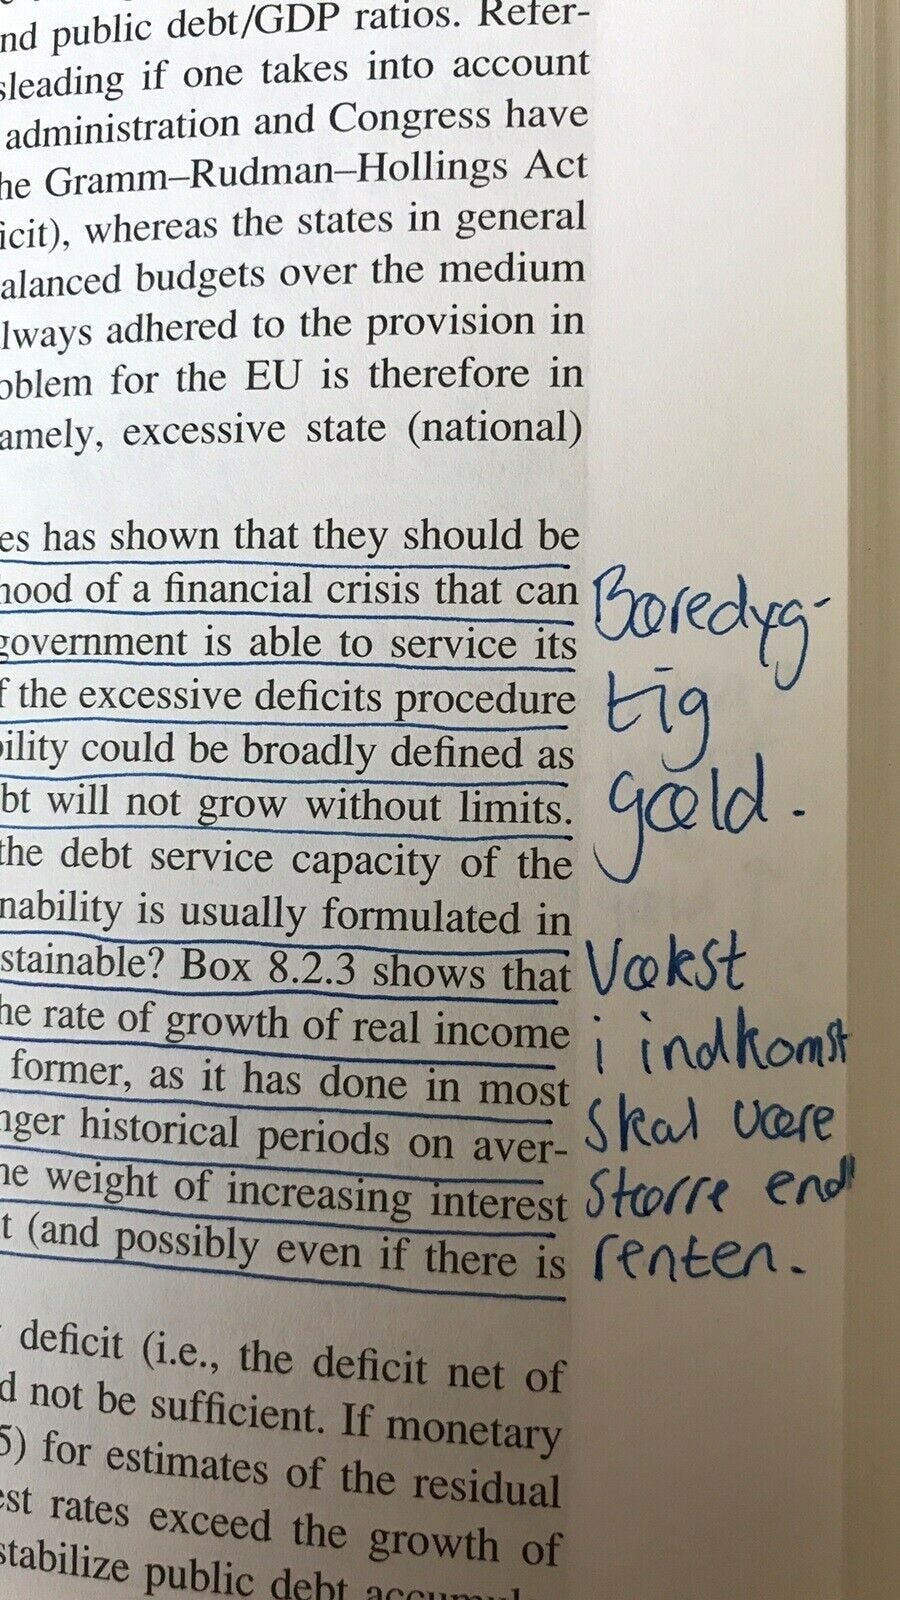 nd public debt/GDP ratios. Refer-
sleading if one takes into account
administration and Congress have
he Gramm–Rudman–Hollings Act
icit), whereas the states in general
alanced budgets over the medium
lways adhered to the provision in
oblem for the EU is therefore in
amely, excessive state (national)
es has shown that they should be
hood of a financial crisis that can
government is able to service its
f the excessive deficits procedure
ility could be broadly defined as
bt will not grow without limits.
the debt service capacity of the
nability is usually formulated in
stainable? Box 8.2.3 shows that
he rate of growth of real income
former, as it has done in most
nger historical periods on aver-
he weight of increasing interest
t (and possibly even if there is
deficit (i.e., the deficit net of
d not be sufficient. If monetary
5) for estimates of the residual
est rates exceed the growth of
stabilize public debt accumul
Bæredyg-
tig
gæld.
Vækst
i indkomst
skal være
større end
renten.